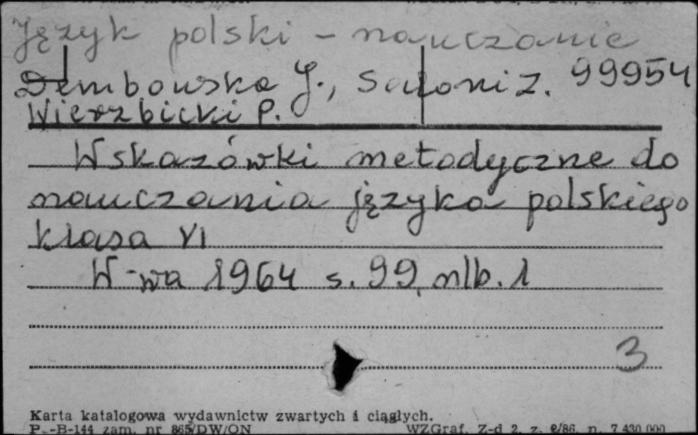 Język polski - nauczanie
Dembowska J., Saloni Z. 99954
Wierzbicki P.
Wskazówki metodyczne do
nauczania języka polskiego
klasa VI
W-wa 1964 s. 99, nlb. 1
3
Karta katalogowa wydawnictw zwartych i ciągłych.
P.-B-144 zam. nr 865/DW/ON WZGraf. Z-d 2, z. 2/86, n. 7 430 000